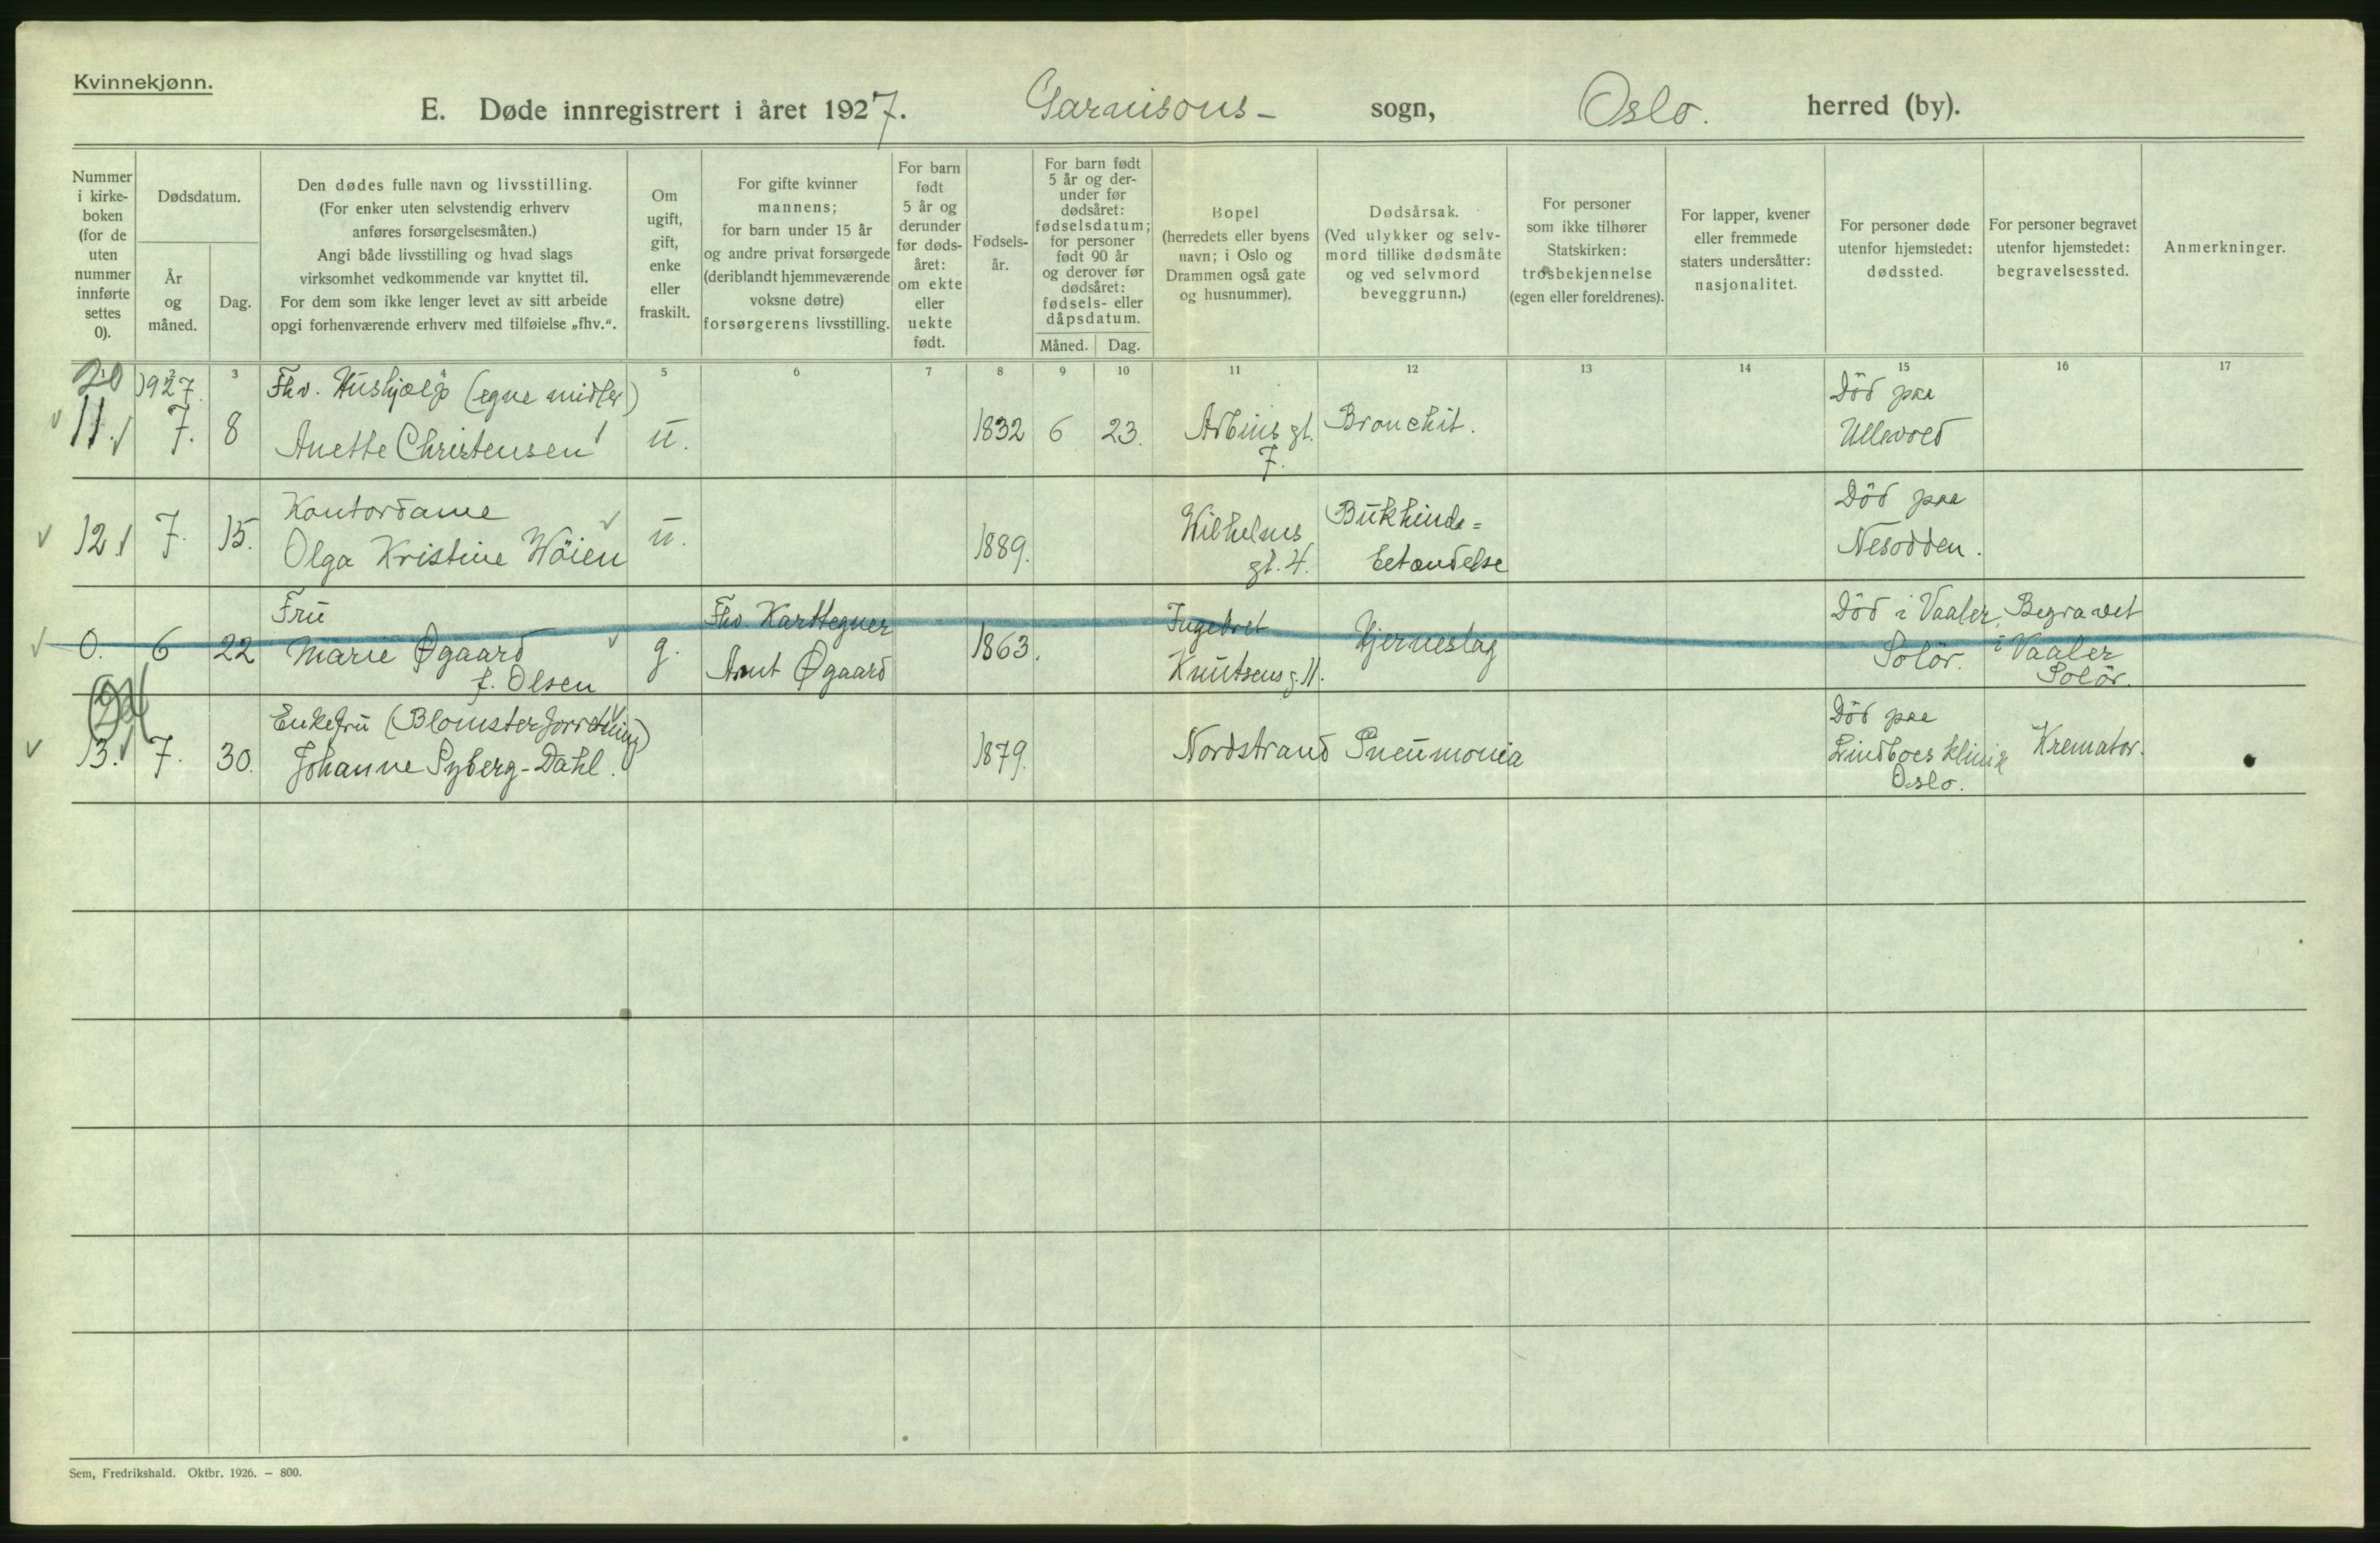 Kvinnekjønn.
E. Døde innregistrert i året 1927. Garnisons- sogn, Oslo. herred (by).
Nummer i kirke- boken (for de uten nummer innførte settes 0).
Dødsdatum.
År og måned.
Dag.
Den dødes fulle navn og livsstilling.
(For enker uten selvstendig erhverv
anføres forsørgelsesmåten.)
Angi både livsstilling og hvad slags
virksomhet vedkommende var knyttet til.
For dem som ikke lenger levet av sitt arbeide
opgi forhenværende erhverv med tilføielse „fhv.“.
Om ugift, gift, enke eller fraskilt.
For gifte kvinner
mannens;
for barn under 15 år
og andre privat forsørgede
(deriblandt hjemmeværende
voksne døtre)
forsørgerens livsstilling.
For barn født 5 år og derunder før døds- året: om ekte eller uekte født.
Fødsels- år.
For barn født
5 år og der-
under før
dødsåret:
fødselsdatum;
for personer
født 90 år
og derover før
dødsåret:
fødsels- eller
dåpsdatum.
Måned. Dag.
Bopel
(herredets eller byens
navn; i Oslo og
Drammen også gate
og husnummer).
Dødsårsak.
(Ved ulykker og selv-
mord tillike dødsmåte
og ved selvmord
beveggrunn.)
For personer
som ikke tilhører
Statskirken:
trosbekjennelse
(egen eller foreldrenes).
For lapper, kvener
eller fremmede
staters undersåtter:
nasjonalitet.
For personer døde
utenfor hjemstedet:
dødssted.
For personer begravet
utenfor hjemstedet:
begravelsessted.
Anmerkninger.
1 2 3 4 5 6 7 8 9 10 11 12 13 14 15 16 17
20 1927. Fhv. Hushjælp (egne midler) Død paa
11. 7. 8 Anette Christensen u. 1832 6 23. Arbins gt. Bronchit. Ullevold
7.
Kontordame Wilhelms Bukhinde= Død paa
12. 7. 15. Olga Kristine Wöien u. 1889. gt. 4. betændelse Nesodden.
Fru Fhv. Karttegner Ingebret Död i Vaaler, Begravet
0. 6 22 Marie Øgaard g. Arnt Øgaard 1863. Knutsens g. 11. Hjerneslag Solör. i Vaaler
f. Olsen Solör.
Enkefru (Blomsterforretning) Död paa
13. 7. 30. Johanne Syberg-Dahl. 1879. Nordstrand Pneumonia Lindboes klinik Kremator.
Oslo.
Sem, Fredrikshald. Oktbr. 1926. – 800.